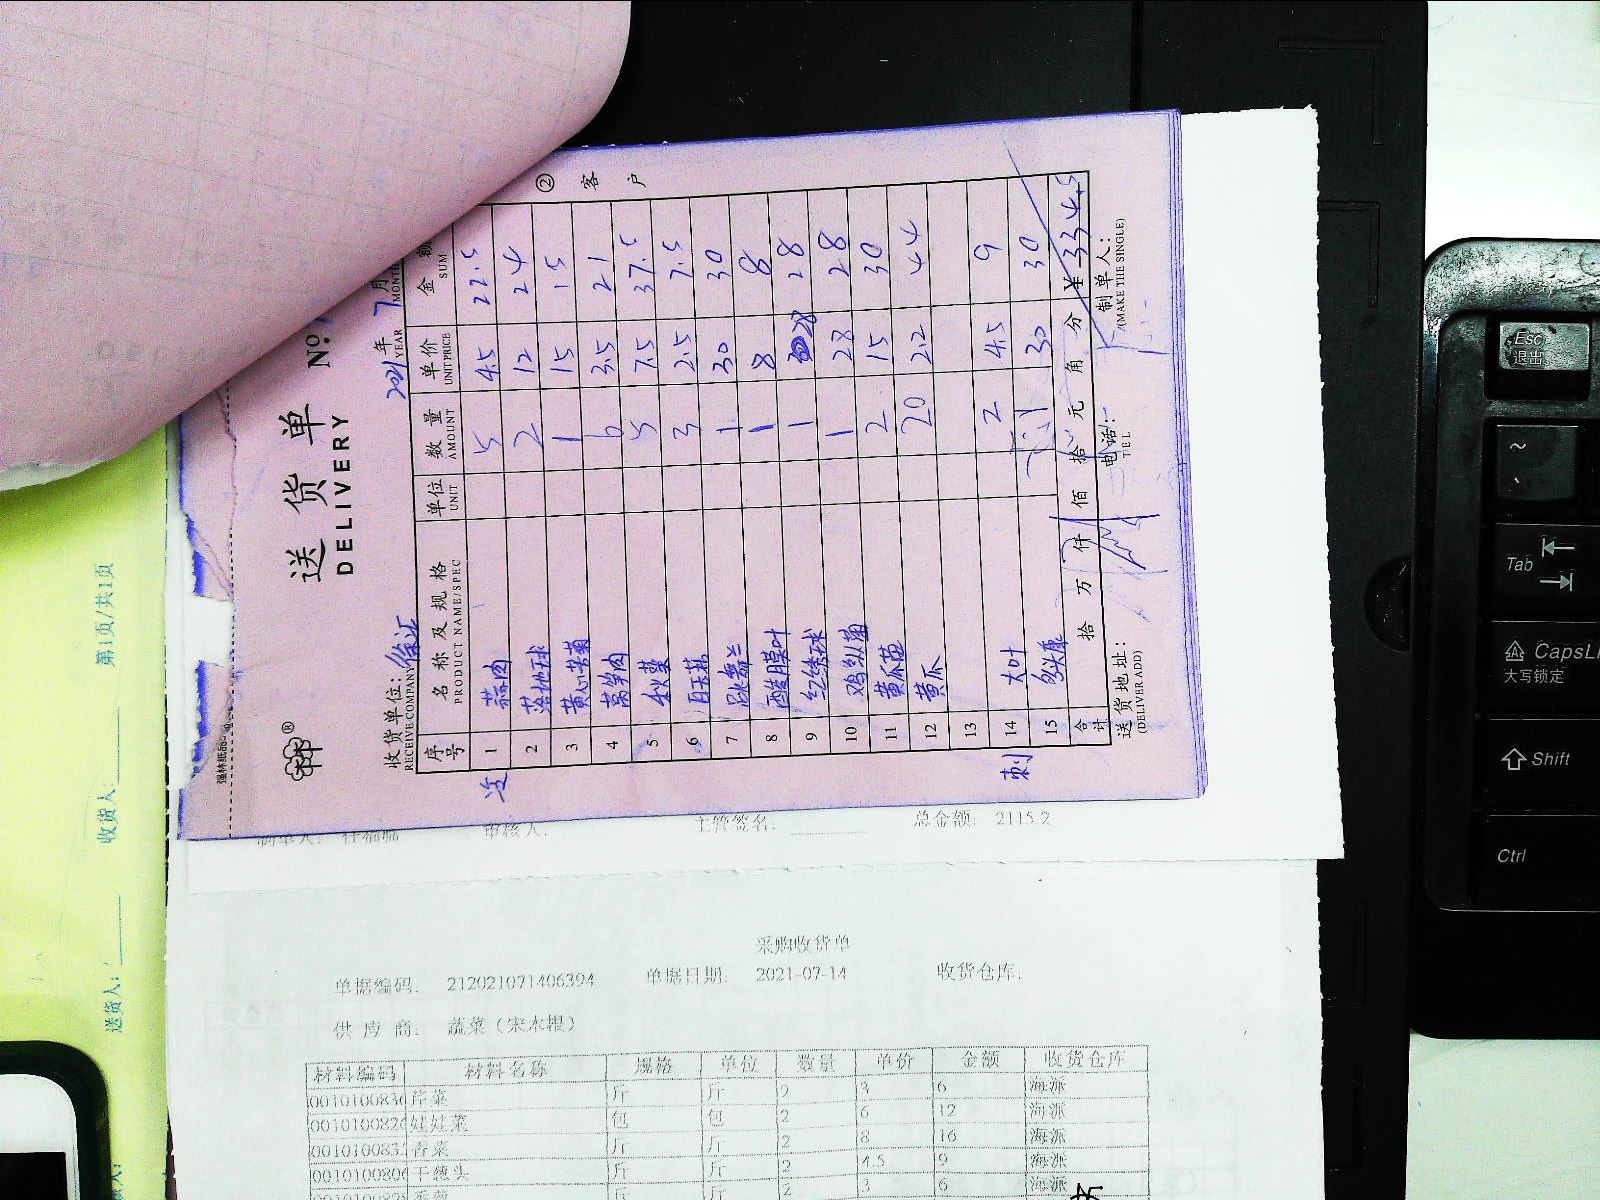 送货单 No:
DELIVERY
2021年 7月
YEAR MONTH
收货单位: 徐汇
RECEIVE COMPANY
② 客户
序号 名称及规格 单位 数量 单价 金额
PRODUCT NAME/SPEC UNIT AMOUNT UNIT PRICE SUM
送 1 蒜肉 5 4.5 22.5
2 落地球 2 12 24
3 黄心苦菊 1 15 15
4 莴笋肉 6 3.5 21
5 秋葵 5 7.5 37.5
6 3 2.5 7.5
7 跳舞兰 1 30 30
8 酸膜叶 1 8 8
9 红绣球 1 28 28
10 鸡纵菌 1 28 28
11 黄瓜苗 2 15 30
12 黄瓜 20 2.2 44
13
刺 14 大叶 2 4.5 9
15 1 30 30
合计 拾 万 仟 佰 拾 元 角 分 ¥ 334.5
送货地址: 电话: 制单人:
(DELIVER ADD) TEL (MAKE THE SINGLE)
审核人: 主管签名: 总金额: 2115.2
第1页/共1页
收货人:
送货人:
采购收货单
单据编码: 212021071406394 单据日期: 2021-07-14 收货仓库:
供应商: 蔬菜(宋木根)
材料编码 材料名称 规格 单位 数量 单价 金额 收货仓库
芹菜 斤 斤 2 3 6 海派
娃娃菜 包 包 2 6 12 海派
香菜 斤 斤 2 8 16 海派
干葱头 斤 斤 2 4.5 9 海派
斤 斤 2 3 6 海派
Esc
退出
~
Tab
CapsL
大写锁定
Shift
Ctrl